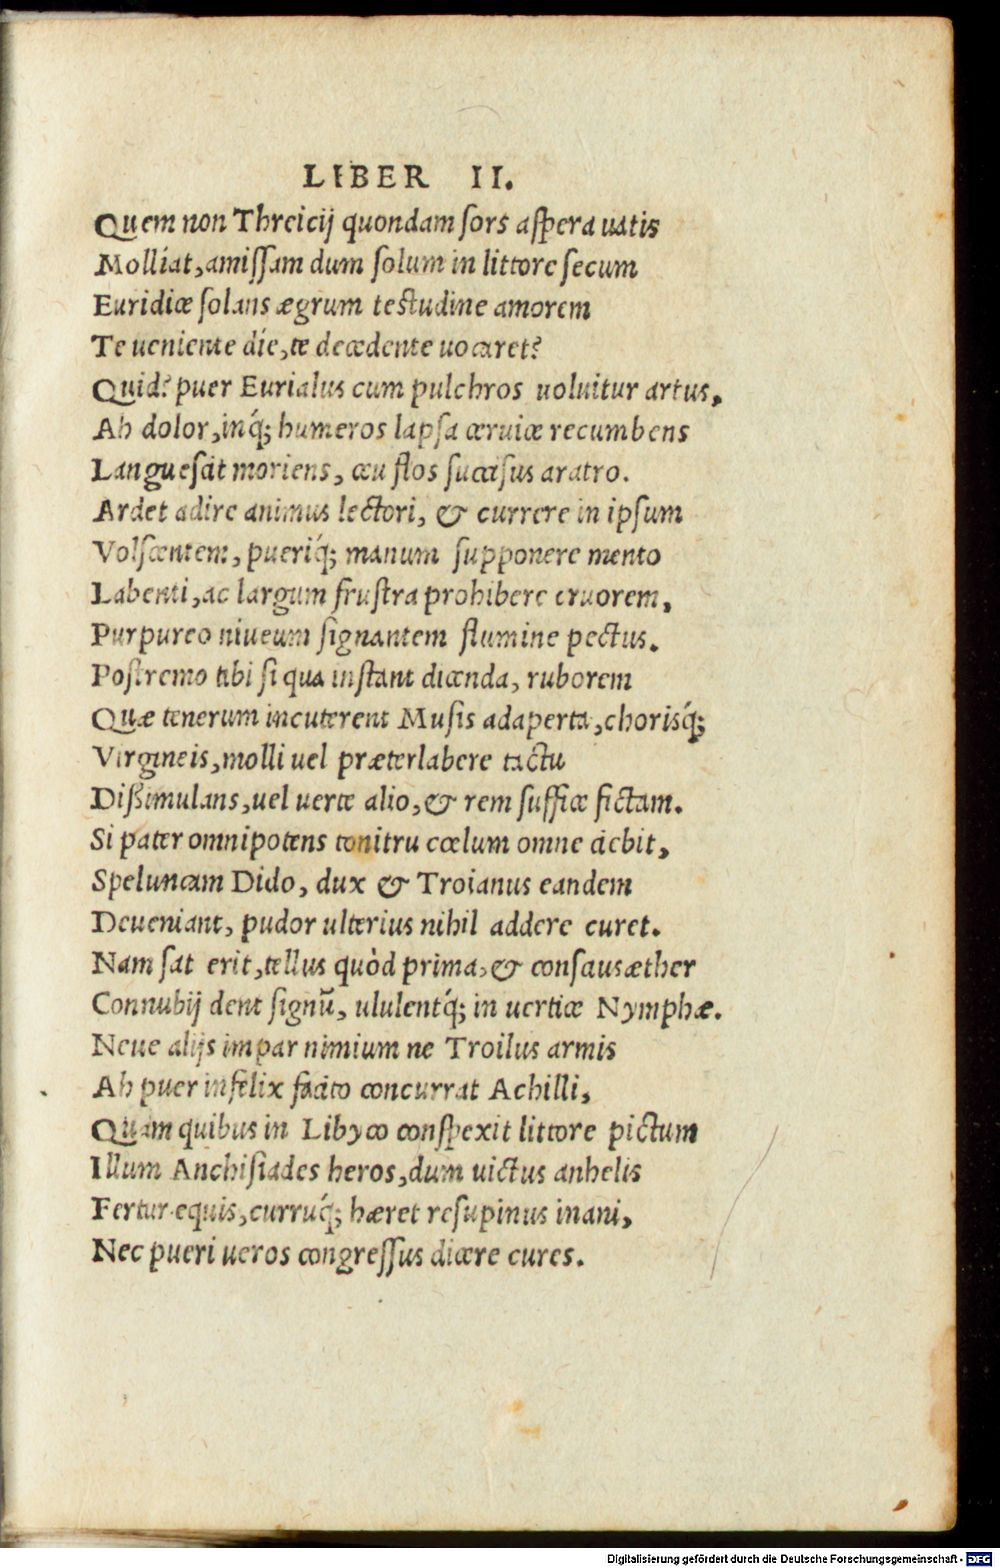 LIBER II.
Quem non Threicij quondam sors aspera uatis
Molliat, amissam dum solum in littore secum
Euridice solans ægrum testudine amorem
Te ueniente die, te decedente uocaret?
Quid? puer Eurialus cum pulchros uoluitur artus,
Ah dolor, inq́; humeros lapsa ceruice recumbens
Languescit moriens, ceu flos succisus aratro.
Ardet adire animus lectori, & currere in ipsum
Volscentem, pueriq́; manum supponere mento
Labenti, ac largum frustra prohibere cruorem,
Purpureo niueum signantem flumine pectus.
Postremo tibi si qua instant dicenda, ruborem
Quæ tenerum incuterent Musis adaperta, chorisq́;
Virgineis, molli uel præterlabere tactu
Dissimulans, uel uerte alio, & rem suffice fictam.
Si pater omnipotens tonitru cœlum omne ciebit,
Speluncam Dido, dux & Troianus eandem
Deueniant, pudor ulterius nihil addere curet.
Nam sat erit, tellus quòd prima, & conscius æther
Connubij dent signū, ululentq́; in uertice Nymphæ.
Neue alijs impar nimium ne Troilus armis
Ah puer infelix facito concurrat Achilli,
Quam quibus in Libyco conspexit littore pictum
Illum Anchisiades heros, dum uictus anhelis
Fertur equis, curruq́; hæret resupinus inani,
Nec pueri ueros congressus dicere cures.
Digitalisierung gefördert durch die Deutsche Forschungsgemeinschaft - DFG